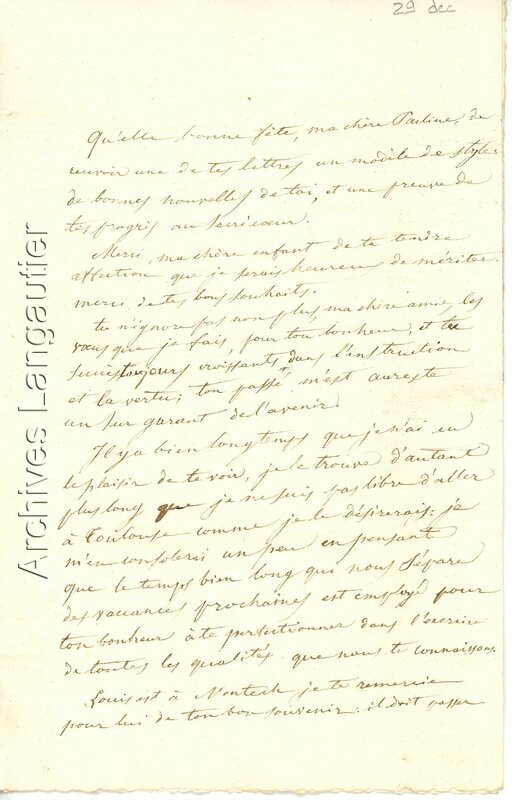 29 dec
Qu'elle bonne fête, ma chère Pauline, de
recevoir une de tes lettres un modèle de style
de bonnes nouvelles de toi, et une preuve de
tes progrès au sacré coeur.
Merci, ma chère enfant de ta tendre
affection que je serais heureux de mériter
merci de tes bons souhaits.
tu n'ignore pas non plus, ma chère amie, les
voeux que je fais pour ton bonheur, et tes
succès toujours croissants dans l'instruction
et la vertu; ton passé m'est au reste
un sur garant de l'avenir.
Il y a bien longtemps que je n'ai eu
le plaisir de te voir, je le trouve d'autant
plus long que je ne suis pas libre d'aller
à Toulouse comme je le désirerais; je
m'en consolerai un peu en pensant
que le temps bien long qui nous sépare
des vacances prochaines est employé pour
ton bonheur à te perfectionner dans l'exercice
de toutes les qualités que nous te connaissons.
Louis est à Montech je te remercie
pour lui de ton bon souvenir: il doit passer
Archives Langautier